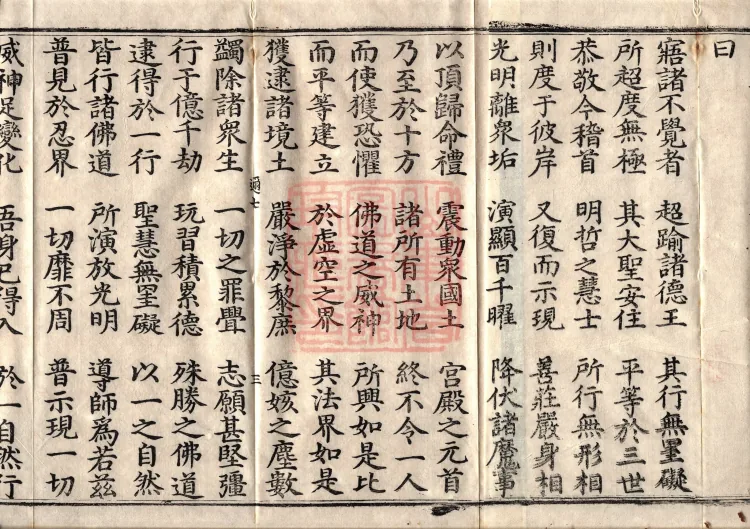 曰
寤諸不覺者 超踰諸德王 其行無罣礙
所超度無極 其大聖安住 平等於三世
恭敬今稽首 明哲之慧士 所行無形相
則度于彼岸 又復而示現 善莊嚴身相
光明離衆垢 演顯百千曜 降伏諸魔事
以頂歸命禮 震動衆國土 宮殿之元首
乃至於十方 諸所有土地 終不令一人
而使獲恐懼 佛道之威神 所興如是比
而平等建立 於虛空之界 其法界如是
獲逮諸境土 嚴淨於黎庶 億姟之塵數
邇七 三
蠲除諸衆生 一切之罪舋 志願甚堅彊
行于億千劫 玩習積累德 殊勝之佛道
逮得於一行 聖慧無罣礙 以一之自然
皆行諸佛道 所演放光明 導師爲若茲
普見於忍界 一切靡不周 普示現一切
威神足變化 吾身已得入 於一自然行